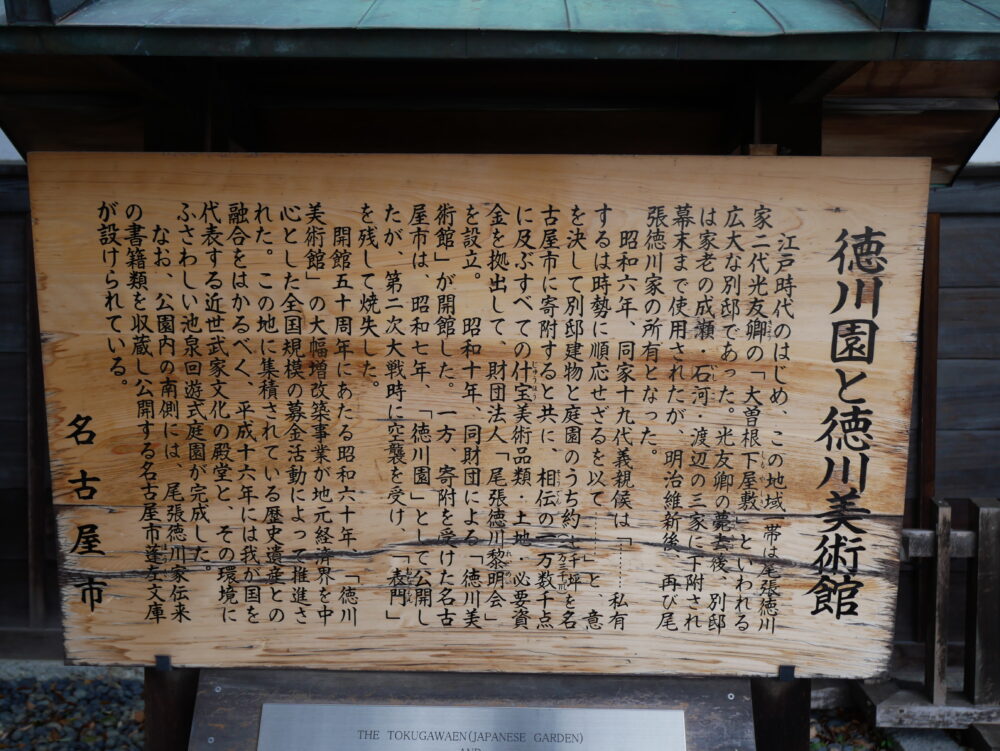 徳川園と徳川美術館
江戸時代のはじめ、この地域一帯は尾張徳川
家二代光友卿の「大曽根下屋敷」といわれる
広大な別邸であった。光友卿の薨去後、別邸
は家老の成瀬・石河・渡辺の三家に下附され
幕末まで使用されたが、明治維新後、再び尾
張徳川家の所有となった。
昭和六年、同家十九代義親候は「………私有
するは時勢に順応せざるを以て………」と、意
を決して別邸建物と庭園のうち約一千坪を名
古屋市に寄附すると共に、相伝の一万数千点
に及ぶすべての什宝美術品類・土地・必要資
金を拠出して、財団法人「尾張徳川黎明会」
を設立。昭和十年、同財団による「徳川美
術館」が開館した。一方、寄附を受けた名古
屋市は、昭和七年、「徳川園」として公開し
たが、第二次大戦時に空襲を受け、「表門」
を残して焼失した。
開館五十周年にあたる昭和六十年、「徳川
美術館」の大幅増改築事業が地元経済界を中
心とした全国規模の募金活動によって推進さ
れた。この地に集積されている歴史遺産との
融合をはかるべく、平成十六年には我が国を
代表する近世武家文化の殿堂と、その環境に
ふさわしい池泉回遊式庭園が完成した。
なお、公園内の南側には、尾張徳川家伝来
の書籍類を収蔵し公開する名古屋市蓬左文庫
が設けられている。
名古屋市
THE TOKUGAWAEN(JAPANESE GARDEN)
AND